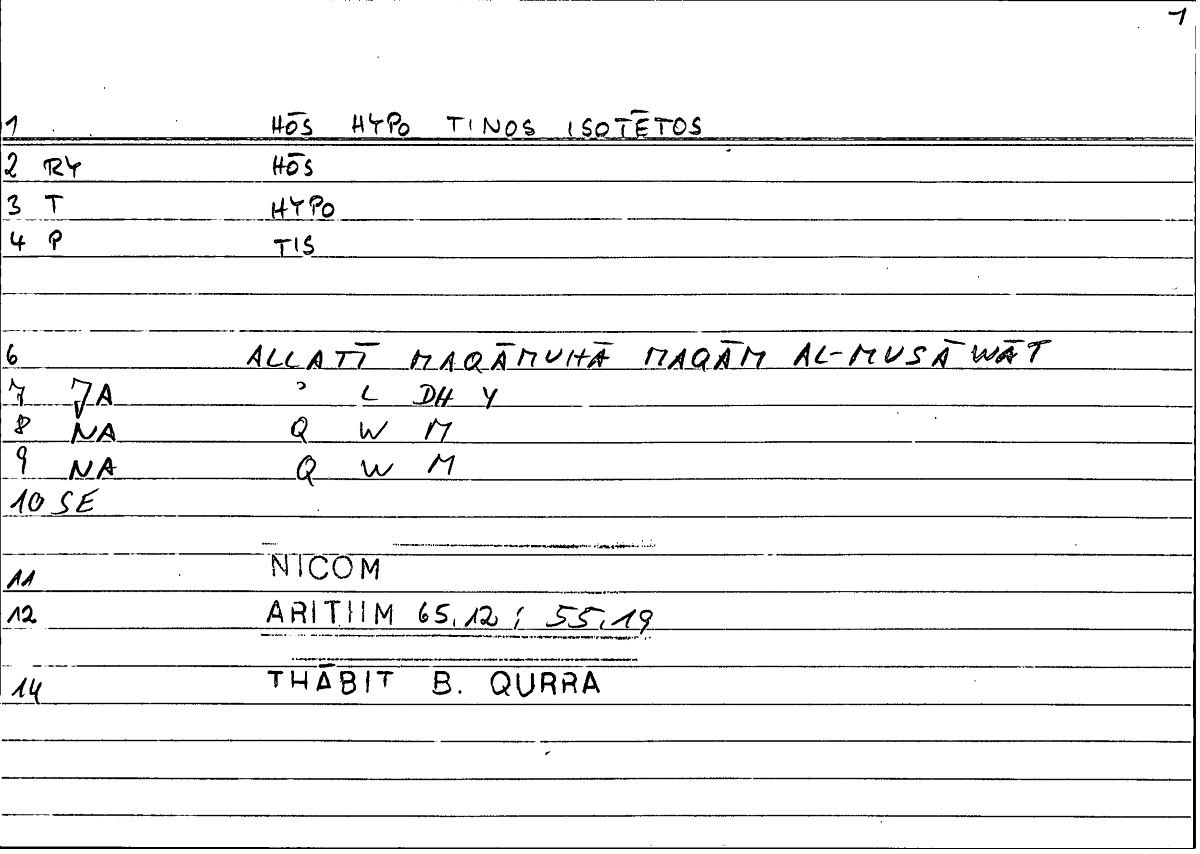 1
1 HŌS HYPO TINOS ISOTĒTOS
2 RY HŌS
3 T HYPO
4 P TIS
6 ALLATĪ MAQĀMUHĀ MAQĀM AL-MUSĀWĀT
7 JA ʾ L DH Y
8 NA Q W M
9 NA Q W M
10 SE
11 NICOM
12 ARITHM 65,12 ; 55,19
14 THĀBIT B. QURRA